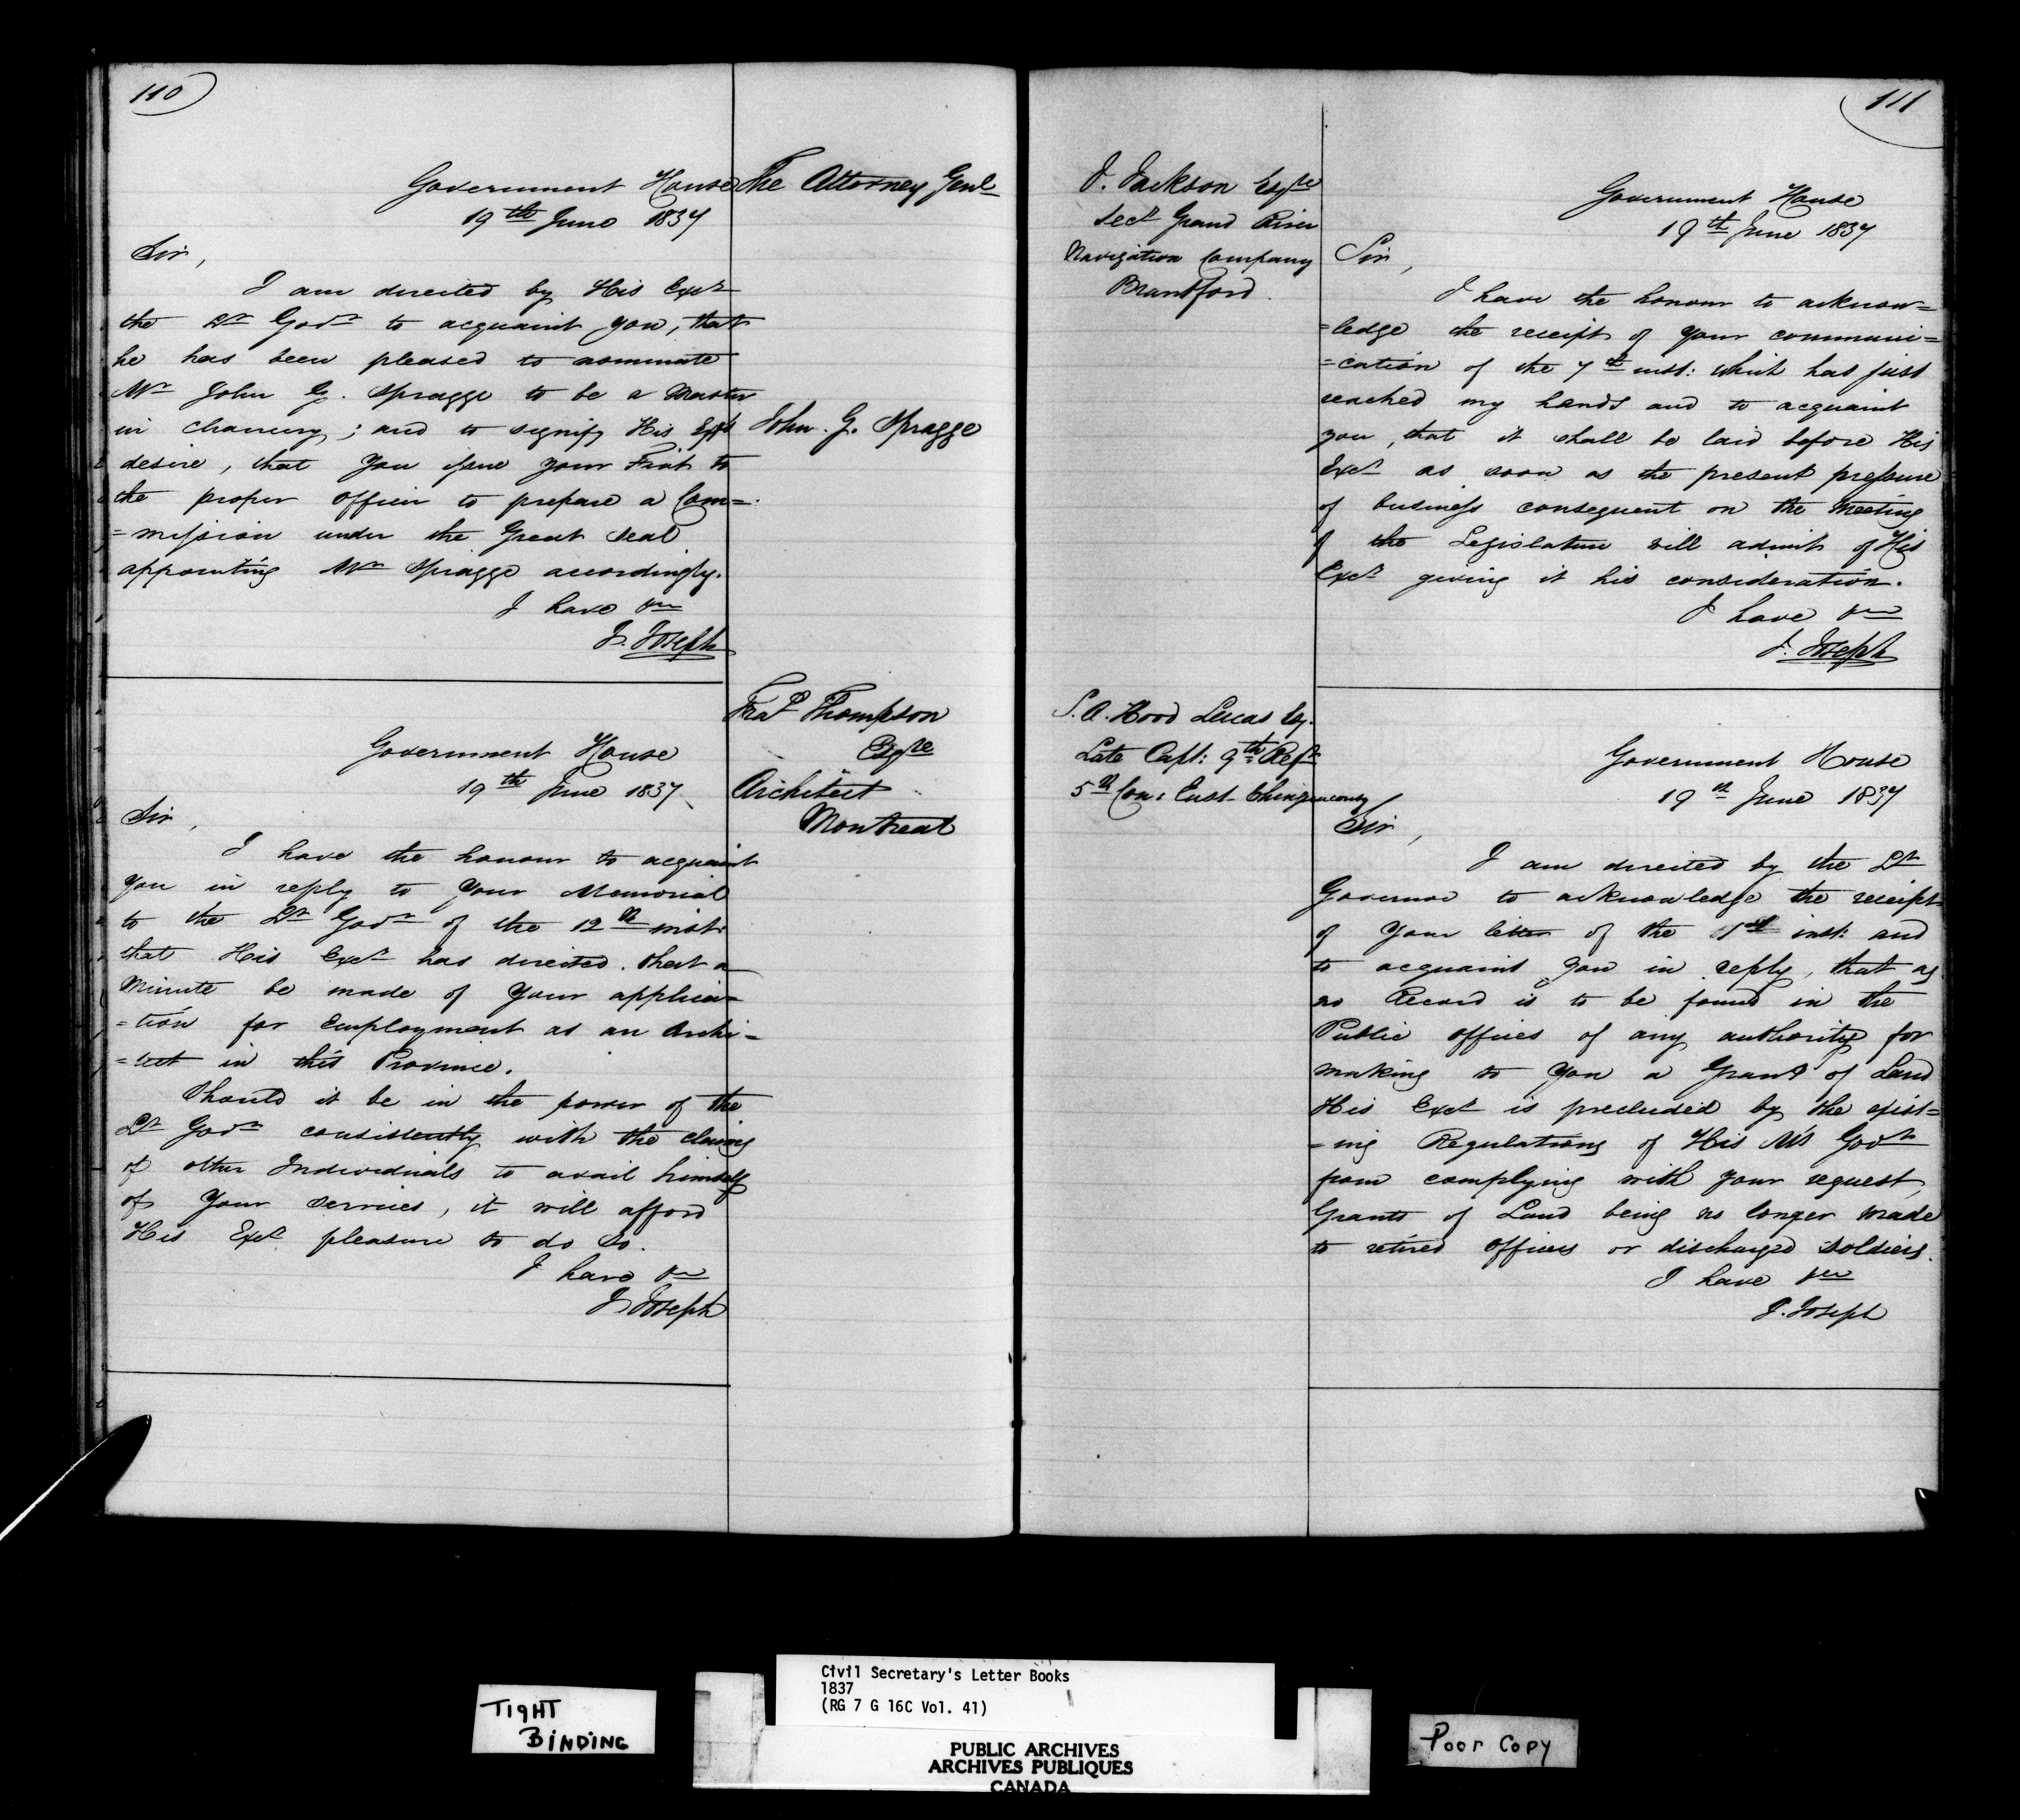 110
The Attorney Genl
Government House
19th June 1837
Sir,
I am directed by His Excy
the Lt Govr to acquaint you, that
he has been pleased to nominate
Mr John G. Spragge to be a Master
in Chancery; and to signify His Excy's
John. G. Spragge
desire, that you issue your Fiat to
the proper officer to prepare a Com=
=mission under the Great Seal
appointing Mr Spragge accordingly.
I have &c
J. Joseph
Fras Thompson
Esqre
Architect
Montreal
Government House
19th June 1837
Sir,
I have the honour to acquaint
you in reply to your Memorial
to the Lt Govr of the 12th inst:
that His Excy has directed that a
Minute be made of your applica=
=tion for employment as an Archi=
=tect in this Province.
Should it be in the power of the
Lt Govr consistently with the claims
of other Individuals to avail himself
of your services, it will afford
His Excy pleasure to do so.
I have &c
J. Joseph
111
J. Jackson Esqre
Secy Grand River
Navigation Company
Brantford.
Government House
19th June 1837
Sir,
I have the honour to acknow=
=ledge the receipt of your communi=
=cation of the 7th inst: which has just
reached my hands and to acquaint
you, that it shall be laid before His
Excy as soon as the present pressure
of business consequent on the meeting
of the Legislature will admit of His
Excy giving it his consideration.
I have &c
J. Joseph
S. A. Hood Lucas Esq.
Late Capt: 9th Regt
5th Con: East Chinguacousy
Government House
19th June 1837
Sir,
I am directed by the Lt
Governor to acknowledge the receipt
of your letter of the inst: and
to acquaint you in reply, that as
no Record is to be found in the
Public offices of any authority for
making to you a Grant of Land
His Excy is precluded by the exist=
=ing Regulations of His M's Govt
from complying with your request,
Grants of Land being no longer made
to retired officers or discharged Soldiers.
I have &c
J. Joseph
TIGHT
BINDING
Civil Secretary's Letter Books
1837
(RG 7 G 16C Vol. 41)
PUBLIC ARCHIVES
ARCHIVES PUBLIQUES
CANADA
Poor Copy